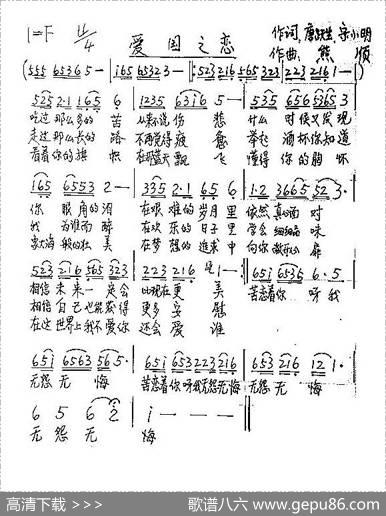 1=F 4/4
爱国之恋
作词：唐跃生 宋小明
作曲：熊 顺
(555 6536 5— | i65 6532 3— ‖: 523 216 565 323 | 223 216 1—)
525 2·1 165 6 | 1235 63i6 5— | 535 656 5365 3
吃过那么多的 苦 从来不说伤 悲 什么 时候又发现
走过那么长的 路 不再觉得疲 惫 举起 酒杯你知道
看着你的旗 帜 在那蓝天飘 飞 懂得 你的胸怀
165 6553 2— | 335 2·1 65 6 | 1·2 3665 52 3·
你 眼角的泪 在艰难的岁月里 依然真心面对
我 为谁而醉 在欢乐的日子里 学会细细品味
像大海般的壮 美 在梦想的追求中 向你敞开心扉
523 216 565 323 | 223 216 1— :‖ 65i 6535 6·5
相信未来一定会 比现在更 美 苦恋着你 呀我
相信自己也能获得 更多安 慰
在这世界上我不爱你 还会爱 谁
65i 6563 56 5· | 65i 653 223 216 | 653 216 12 1·
无怨无 悔 苦恋着你呀我无怨无悔 无怨无 悔
6 5 6 2 | i — — — ‖
无 怨 无 悔
高清下载 >>>
歌谱八六 www.gepu86.com